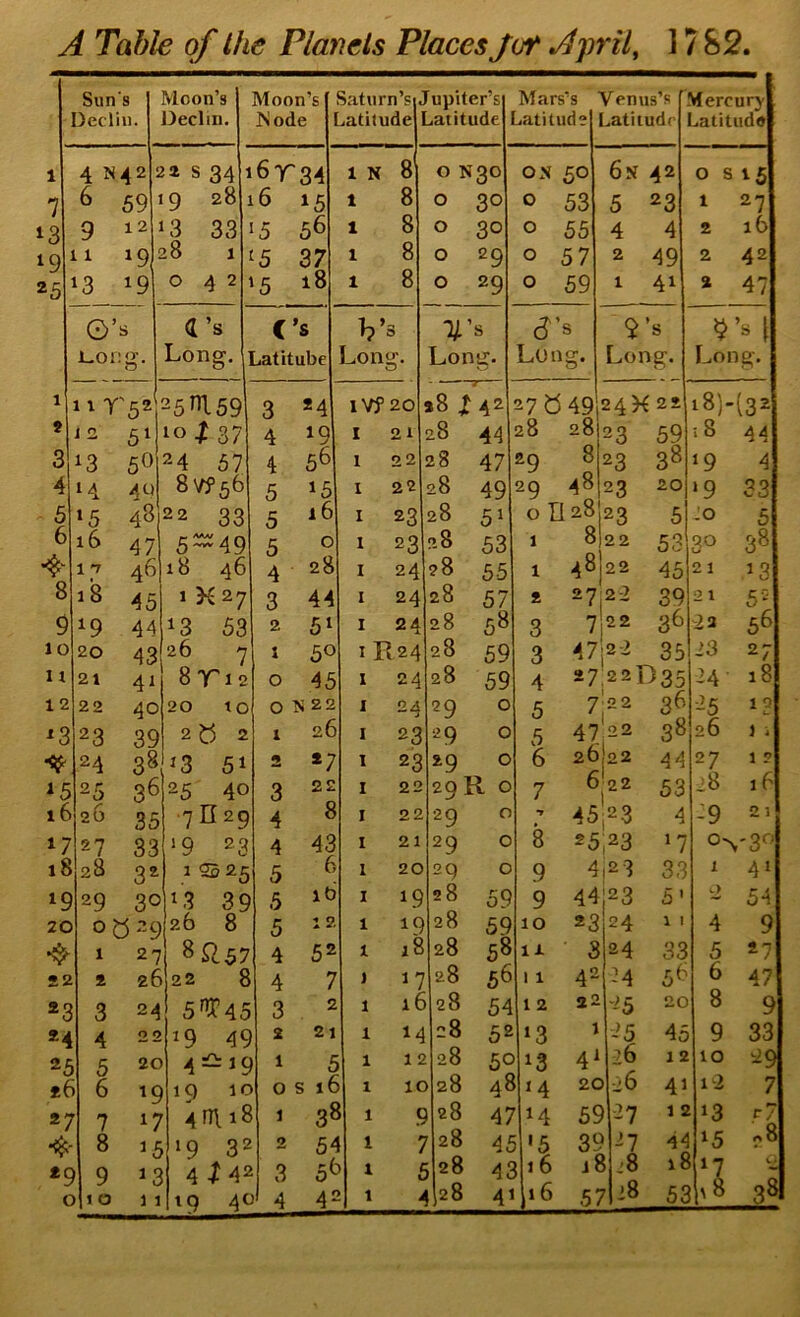 A Table of the Planets Places for April, 1782.
Sun's Declin. Moon's Declin. Moon's Node Saturn's Latitude Jupiter's Latitude Mars's Latitude Venus's Latitude Mercury Latitude
1 4 N 42 22 S 34 16 ♈ 34 1 N 8 0 N 30 0 N 50 6 N 42 0 S 15
7 6 59 19 28 16 15 1 8 0 30 0 53 5 23 1 27
13 9 12 13 33 15 56 1 8 0 30 0 55 4 4 2 16
19 11 19 28 1 15 37 1 8 0 29 0 57 2 49 2 42
25 13 19 0 42 15 18 1 8 0 29 0 59 1 41 2 47
☉'s Long. ☾'s Long. ☾'s Latitube ♄'s Long. ♃'s Long. ♂'s Long. ♀'s Long. ☿'s Long.
1 11 ♈ 52 25 ♏ 59 3 24 1 ♑ 20 28 ♐ 42 27 ♉ 49 24 ♓ 22 18 ♓ 32
2 12 51 10 ♐ 37 4 19 1 21 28 44 28 28 23 59 18 44
3 13 50 24 57 4 56 1 22 28 47 29 8 23 38 19 4
4 14 49 8 ♑ 56 5 15 1 22 28 49 29 48 23 20 19 33
5 15 48 22 33 5 16 1 23 28 51 0 ♊ 28 23 5 20 5
6 16 47 5 ♒ 49 5 0 1 23 28 53 1 8 22 53 30 38
17 46 18 46 4 28 1 24 28 55 1 48 22 45 21 13
8 18 45 1 ♓ 27 3 44 1 24 28 57 2 27 22 39 21 52
9 19 44 13 53 2 51 1 24 28 58 3 7 22 36 22 56
10 20 43 26 7 1 50 1 R 24 28 59 3 47 22 35 23 27
11 21 41 8 ♈ 12 0 45 1 24 28 59 4 27 22 D 35 24 18
12 22 40 20 10 0 N 22 1 24 29 0 5 7 22 36 25 12
13 23 39 2 ♉ 2 1 26 1 23 29 0 5 47 22 38 26
24 38 13 51 2 27 1 23 29 0 6 26 22 44 27 12
15 25 36 25 40 3 22 1 22 29 R 0 7 6 22 53 28 16
16 26 35 7 ♊ 29 4 8 1 22 29 0 7 45 23 4 29 21
17 27 33 19 23 4 43 1 21 29 0 8 25 23 17 0 ♈ 30
18 28 32 1 ♋ 25 5 6 1 20 29 0 9 4 23 33 1 41
19 29 30 13 39 5 16 1 19 28 59 9 44 23 51 2 54
20 0 ♉ 29 26 8 5 12 1 19 28 59 10 23 24 11 4 9
1 27 8 ♌ 57 4 52 1 18 28 58 11 3 24 33 5 27
22 2 26 22 8 4 7 1 17 28 56 11 42 24 56 6 47
23 3 24 5 ♍ 45 3 2 1 16 28 54 12 22 25 20 8 9
24 4 22 19 49 2 21 1 14 28 52 13 1 25 45 9 33
25 5 20 4 ♎ 19 1 5 1 12 28 50 13 41 26 12 10 29
26 6 19 19 10 0 S 16 1 10 28 48 14 20 26 41 12 7
27 7 17 4 ♏ 18 1 38 1 9 28 47 14 59 27 12 13
8 15 19 32 2 54 1 7 28 45 15 39 27 44 15 28
29 9 13 4 ♐ 42 3 56 1 5 28 43 16 18 28 18 17
0 10 11 19 40 4 42 1 4 28 41 16 57 28 53 18 38